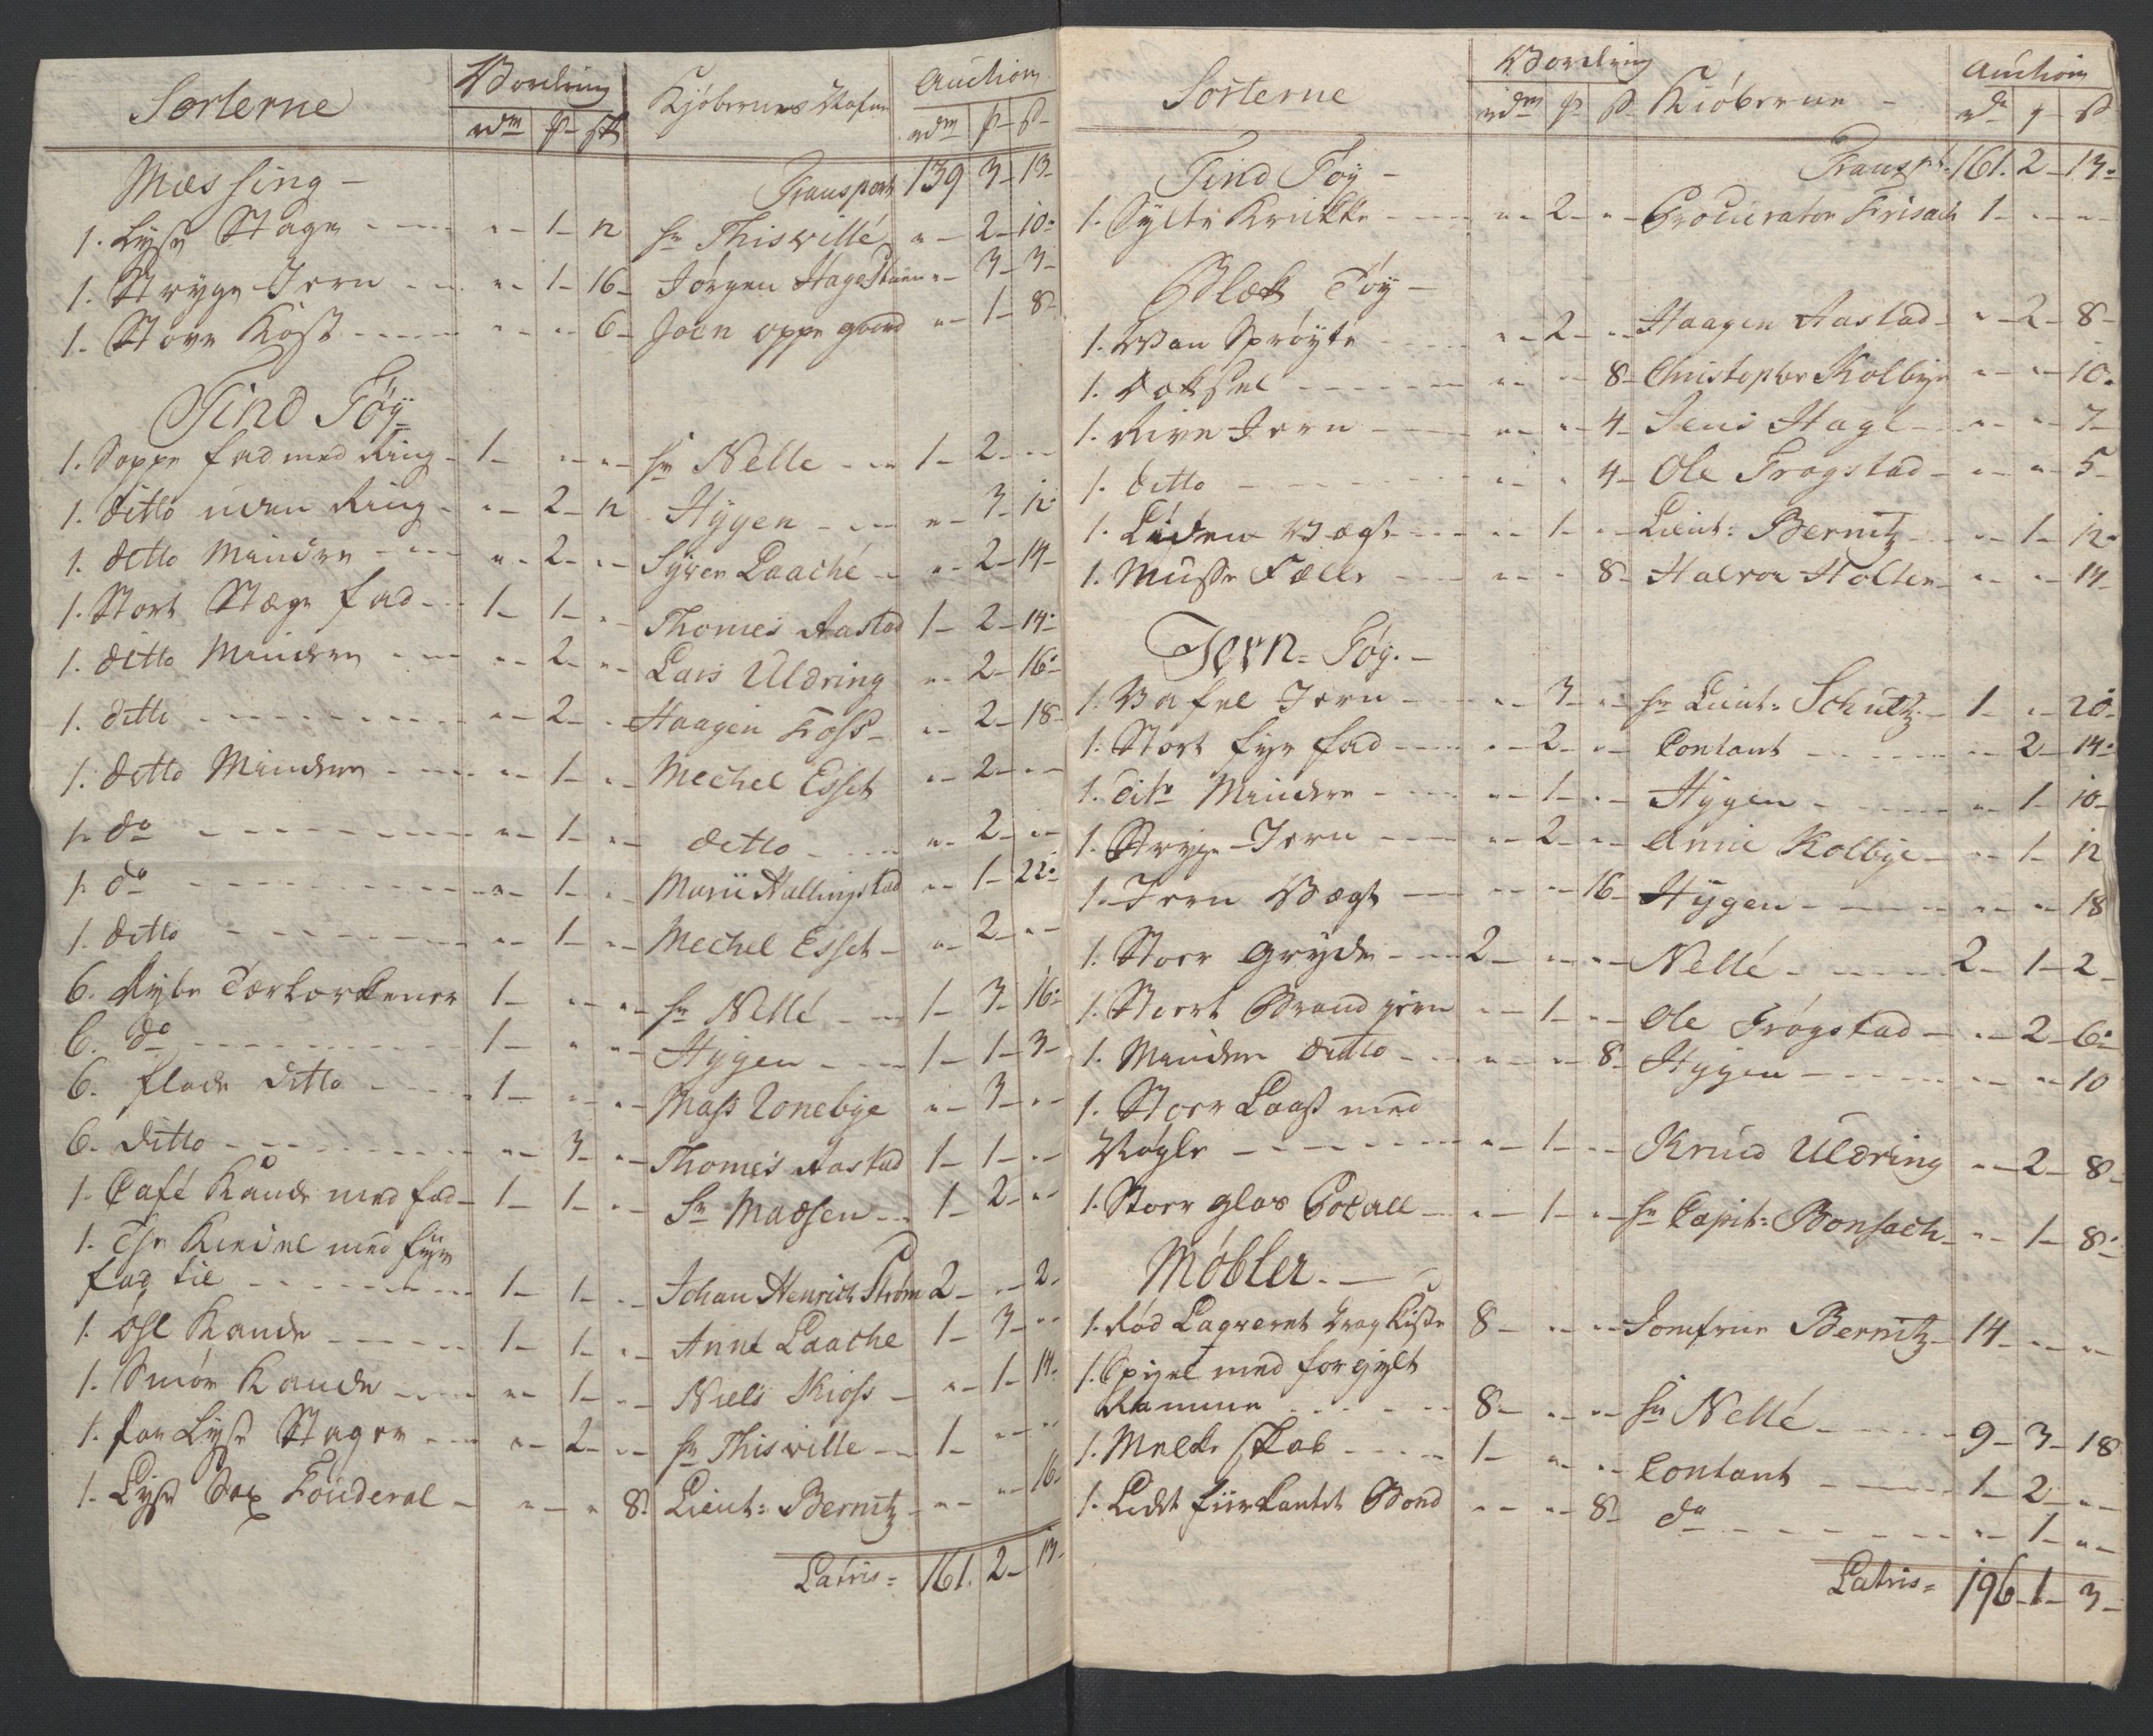 Sorterne Vordring Kjøbernes Nafne Auction
rdr ₻ ſk rdr ₻ ß
Messing - Transport 139 3 13
1. Lyse Stage - - 1 - 12 hr Thisvillé - 2 - 10
1. Stryge Jern - - 1 - 16 Jørgen Hagestuen - 3 - 3
1. Støve Kost - - - 6 Joen oppegaard - 1 - 8
Tind Tøy
1. Soppe fad med Ring 1 - - hr Nelle 1 - 2 -
1. ditto uden Ring - 2 - 12 Hygen - 3 - 12
1. ditto Mindre - 2 - Syver Laaché - 2 - 14
1. Stort Stege fad 1 - 1 - Thomes Aastad 1 - 2 - 14
1. ditto Mindre - 2 - Lars Uldring - 2 - 16
1. ditto - 2 - Haagen Foss - 2 - 18
1. ditto Mindre - 1 - Mechel Esset - 2 -
1. do - 1 - ditto - 2 -
1. do - 1 - Marii Hallingstad - 1 - 22
1. ditto - 1 - Mechel Esset - 2 -
6. dybe Tærlærkener 1 - - hr Nellé 1 - 3 - 16
6. do 1 - - Hygen 1 - 1 - 3
6. flade ditto 1 - - Mass Tonebye - 3 -
6. ditto - 3 - Thomes Aastad 1 - 1 -
1. Café Kande med fad 1 - 1 - Sr Madsen 1 - 2 -
1. The Kiedel med fyr
fad til 1 - 1 - Johan Henrich Strøm 2 - - 2
1. øhl Kande 1 - 1 - Anne Laache 1 - 3 -
1. Smør Kande - 1 - Niels Kioss - 1 - 14
1. Par Lyse Stager - 2 - hr Thisville 1 - -
1. Lyse Sax Fouderal - - 8 Lieut: Bernitz - - 16
Latris = 161. 2 - 13
Sorterne Vordring Kiøberne - Auction
rdr ₻ ß rdr ₻ ß
Tind Tøy - Transpt: 161. 2 - 13
1. Sylte Krukke - 2 - Procurator Frisach 1 - -
Blek Tøy -
1. Van Sprøyte - 2 - Haagen Aastad - 2 - 8
1. Dæksel - - 8 Christopher Kolbye - - 10
1. Rive Jern - - 4 Jens Hagl - - 7
1. ditto - - 4 Ole Frogstad - - 5
1. Liden Vegt - 1 - Lieut: Bernitz - 1 - 12
1. Musse Fælle - - 8 Halvor Holter - - 14
Jern = Tøy. -
1. Vafel Jern - 3 - hr Lieut: Schultz 1 - - 20
1. Stort fyr fad - 2 - Contant - 2 - 14
1. dito Mindre - 1 - Hygen - 1 - 10
1. Stryge - Jern - 2 - Anne Kolbye - 1 - 12
1. Jern Vegt - - 16 Hygen - - 18
1. Stoer Gryde 2 - - Nellé 2 - 1 - 2
1. Stoert Brand jern - 1 - Ole Frøgstad - 2 - 6
1. Minder ditto - - 8 Hygen - - 10
1. Stoer Laass med
Nøgle - 1 - Knud Uldring - 2 - 8
1. Stoer glas Pocall - 1 - hr Capit: Bonsach - 1 - 8
Møbler. -
1. Rød Laqveret Drag Kiste 8 - - Jomfrue Bernitz 14 - -
1. Spigel med forgylt
Ramme 8 - - hr Nellé 9 - 3 - 18
1. Melke Skab 1 - - Contant 1 - 2 -
1. Lidet fiirkantet Bord - - 8 do - 1 -
Latris = 196 - 1 - 3